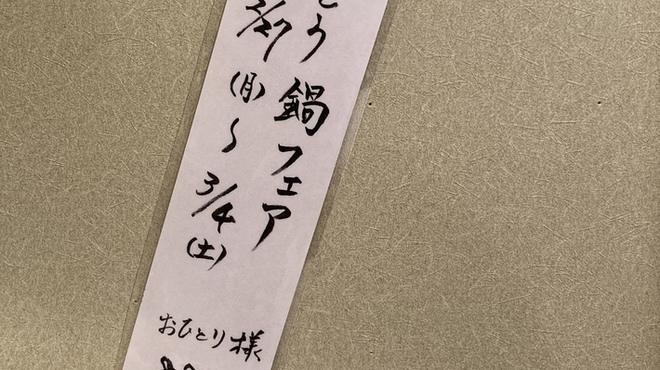 とう鍋フェア
2/27(月)〜3/4(土)
おひとり様